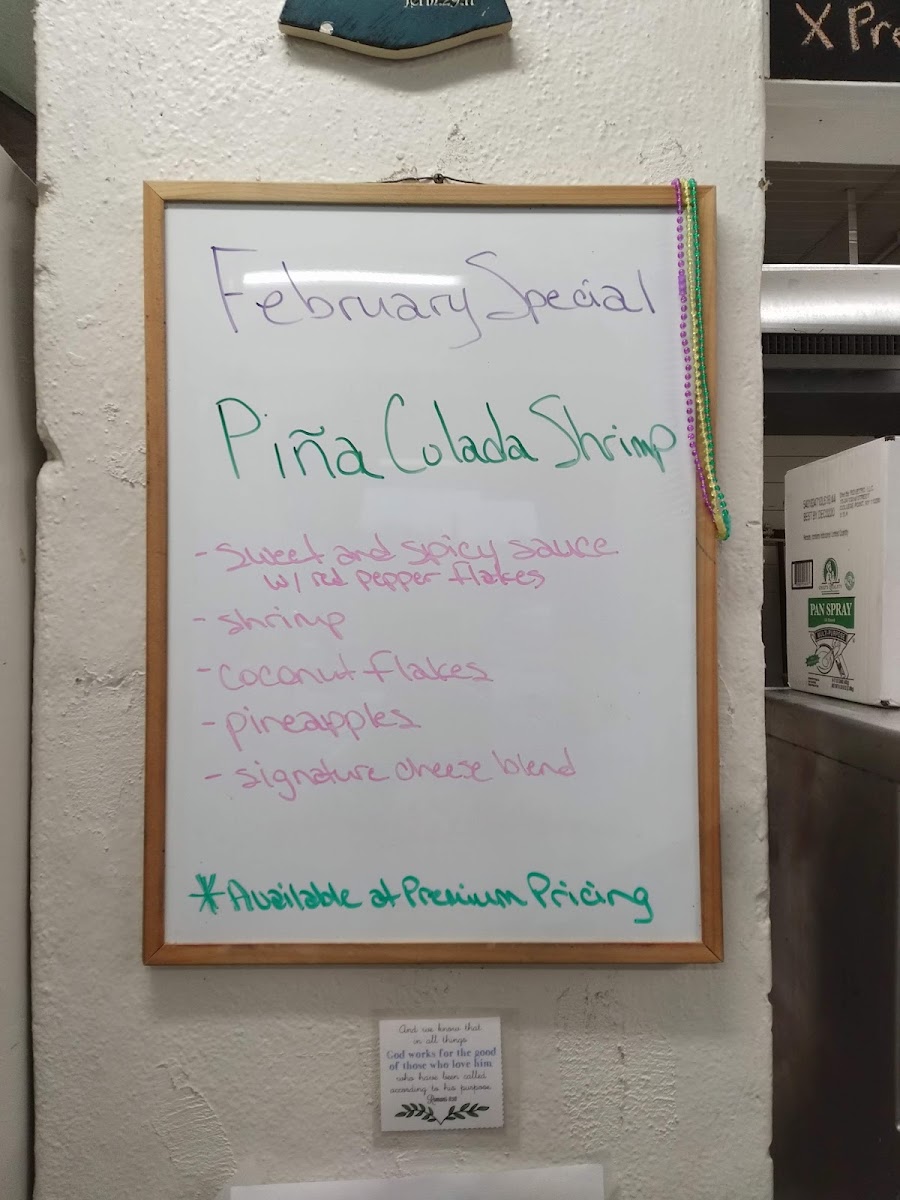 Jer.29:11
X Pre
February Special
Piña Colada Shrimp
- sweet and spicy sauce
w/ red pepper flakes
- shrimp
- coconut flakes
- pineapples
- signature cheese blend
*Available at Premium Pricing
PAN SPRAY
And we know that
in all things
God works for the good
of those who love him
who have been called
according to his purpose
Romans 8:28